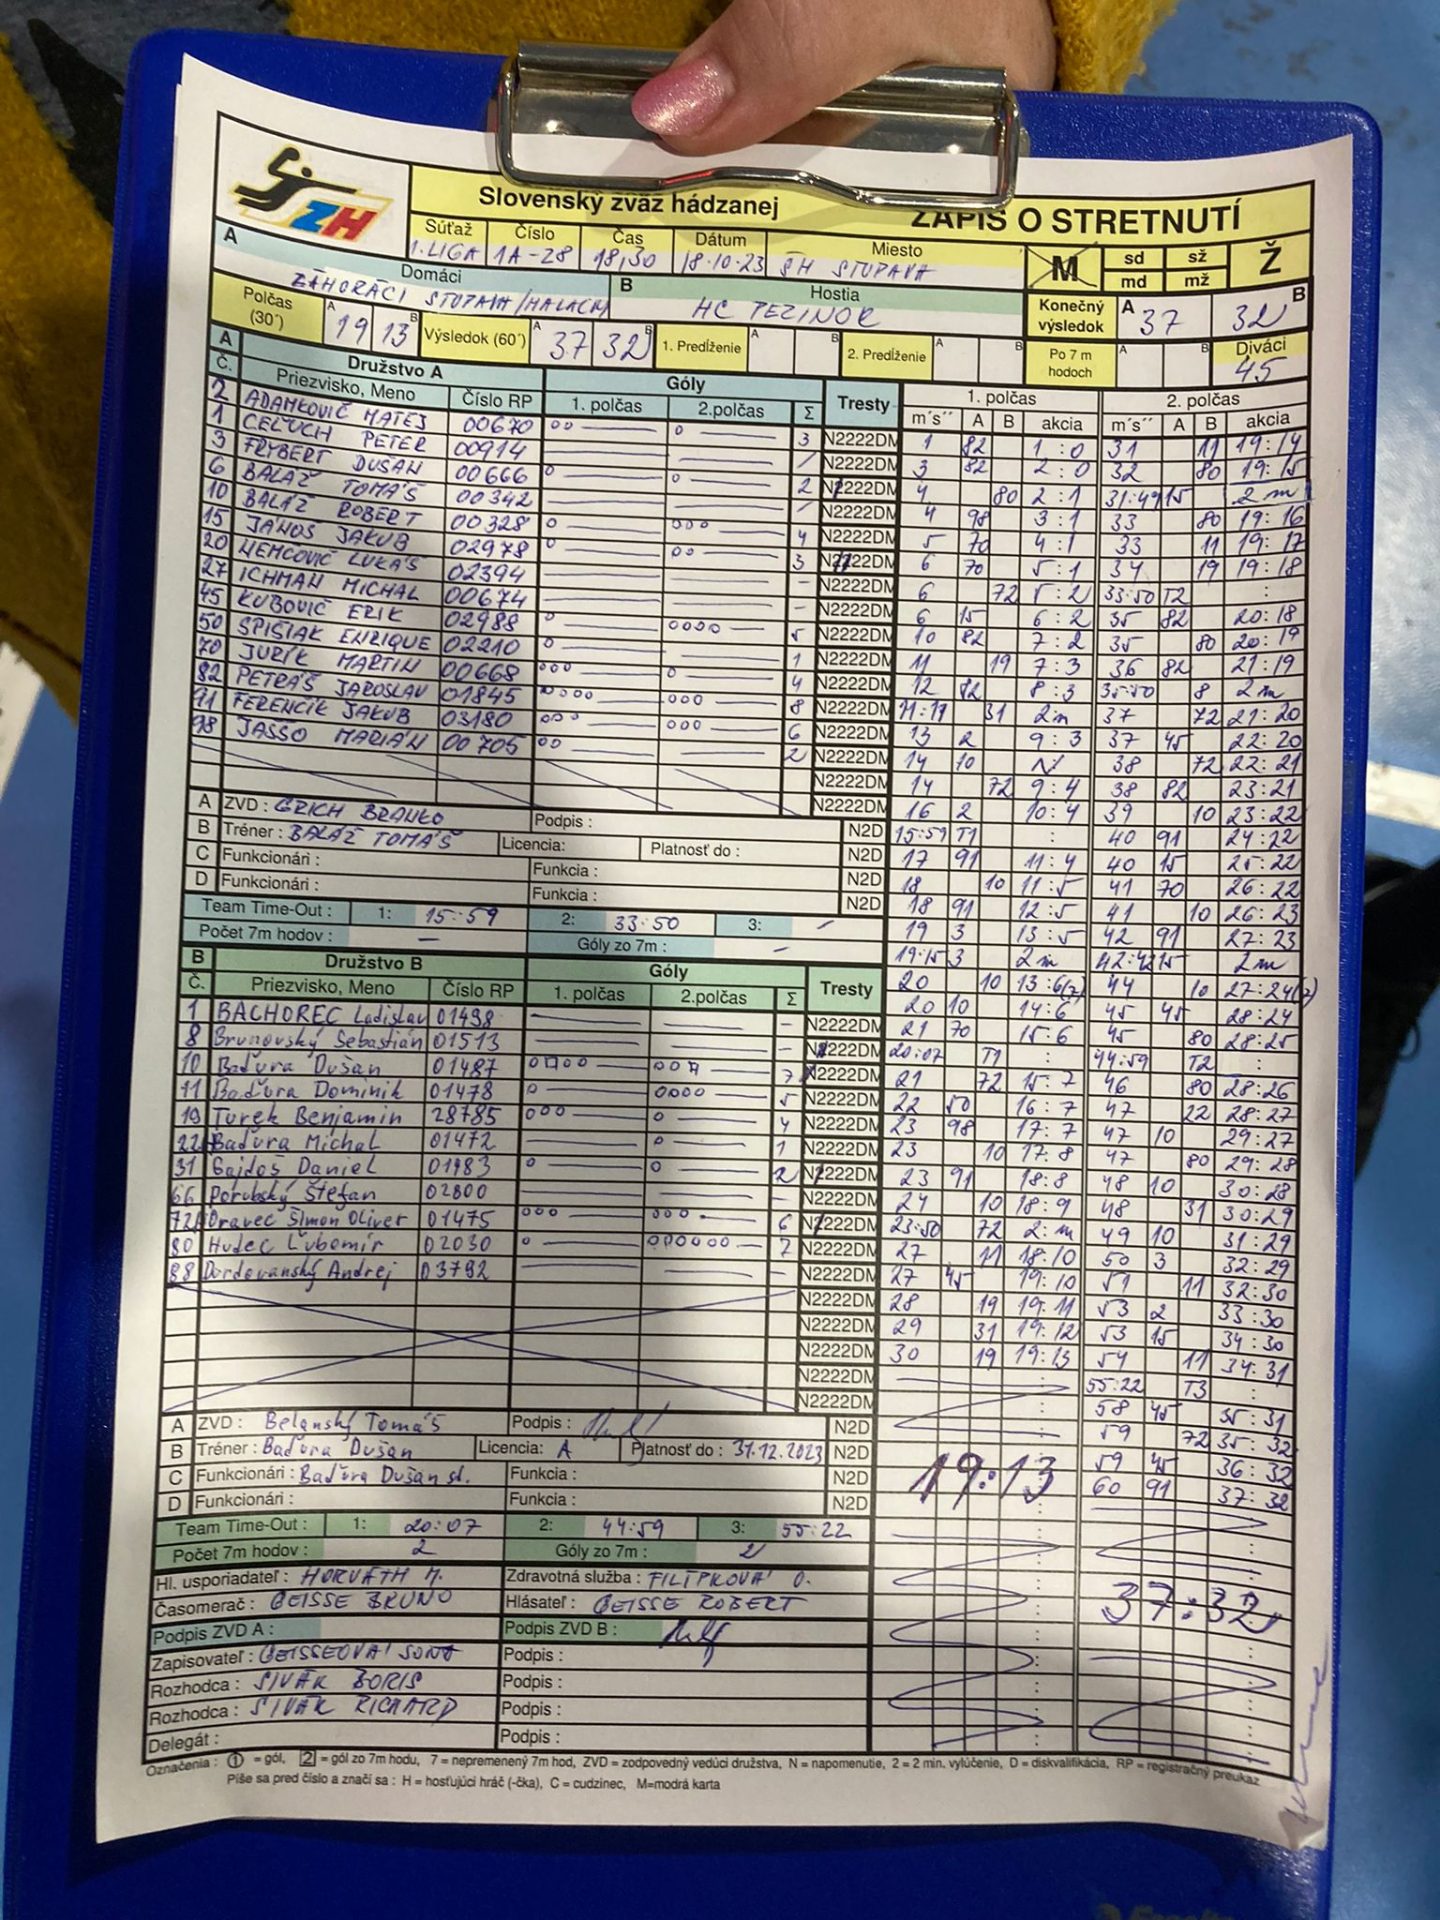 Slovenský zväz hádzanej ZÁPIS O STRETNUTÍ
ZH
Súťaž Číslo Čas Dátum Miesto
1. LIGA 1A-28 18,30 18.10.23 ŠH STUPAVA
M sd sž Ž
md mž
A Domáci B Hostia
ZÁHORÁCI STUPAVA/MALACKY HC PEZINOK
Konečný výsledok A 37 32 B
Polčas (30´) A 19 13 B Výsledok (60´) A 37 32 B 1. Predĺženie A B 2. Predĺženie A B Po 7 m hodoch A B Diváci 45
A Družstvo A Góly Tresty
Č. Priezvisko, Meno Číslo RP 1. polčas 2.polčas Σ
2 ADAMKOVIČ MATEJ 00670 3 N2222DM
1 CELUCH PETER 00914 N2222DM
3 FRYBERT DUŠAN 00666 2 N2222DM
6 BALÁŽ TOMÁŠ 00342 N2222DM
10 BALÁŽ ROBERT 00328 4 N2222DM
15 JÁNOŠ JAKUB 02978 3 N2222DM
20 NEMCOVIČ LUKÁŠ 02394 - N2222DM
27 ICHMAN MICHAL 00674 - N2222DM
45 KUBOVIČ ERIK 02988 5 N2222DM
50 SPIŠIAK ENRIQUE 02210 1 N2222DM
70 JURÍK MARTIN 00668 4 N2222DM
82 PETRÁŠ JAROSLAV 01845 8 N2222DM
91 FERENČÍK JAKUB 03180 6 N2222DM
98 JAŠŠO MARIÁN 00705 2 N2222DM
N2222DM
N2222DM
A ZVD : GRICH BRANKO Podpis : N2D
B Tréner : BALÁŽ TOMÁŠ Licencia: Platnosť do : N2D
C Funkcionári : Funkcia : N2D
D Funkcionári : Funkcia : N2D
Team Time-Out : 1: 15:59 2: 33:50 3: -
Počet 7m hodov : - Góly zo 7m : -
B Družstvo B Góly Tresty
Č. Priezvisko, Meno Číslo RP 1. polčas 2.polčas Σ
1 BACHOREC Ladislav 01498 - N2222DM
8 Brunovský Sebastián 01513 - N2222DM
10 Baďura Dušan 01487 7 N2222DM
11 Baďura Dominik 01478 5 N2222DM
19 Turek Benjamin 28785 4 N2222DM
22 Baďura Michal 01472 1 N2222DM
31 Gajdoš Daniel 01983 2 N2222DM
66 Porubský Štefan 02800 - N2222DM
72 Oravec Šimon Oliver 01475 6 N2222DM
80 Hudec Ľubomír 02030 7 N2222DM
88 Dordovanský Andrej 03792 - N2222DM
N2222DM
N2222DM
N2222DM
N2222DM
N2222DM
A ZVD : Belanský Tomáš Podpis : N2D
B Tréner : Baďura Dušan Licencia: A Platnosť do : 31.12.2023 N2D
C Funkcionári : Baďura Dušan st. Funkcia : N2D
D Funkcionári : Funkcia : N2D
Team Time-Out : 1: 20:07 2: 44:59 3: 55:22
Počet 7m hodov : 2 Góly zo 7m : 2
Hl. usporiadateľ : HORVÁTH M. Zdravotná služba : FILIPKOVÁ O.
Časomerač : GEISSE BRUNO Hlásateľ : GEISSE ROBERT
Podpis ZVD A : Podpis ZVD B :
Zapisovateľ : GEISSEOVÁ SOŇA Podpis :
Rozhodca : SIVÁK BORIS Podpis :
Rozhodca : SIVÁK RICHARD Podpis :
Delegát : Podpis :
1. polčas 2. polčas
m´s´´ A B akcia m´s´´ A B akcia
1 82 1:0 31 11 19:14
3 82 2:0 32 80 19:15
4 80 2:1 31:49 15 2m
4 98 3:1 33 80 19:16
5 70 4:1 33 11 19:17
6 70 5:1 34 19 19:18
6 72 5:2 33:50 T2 :
6 15 6:2 35 82 20:18
10 82 7:2 35 80 20:19
11 19 7:3 36 82 21:19
12 82 8:3 35:50 8 2m
11:17 31 2m 37 72 21:20
13 2 9:3 37 45 22:20
14 10 N 38 72 22:21
14 72 9:4 38 82 23:21
16 2 10:4 39 10 23:22
15:59 T1 : 40 91 24:22
17 91 11:4 40 15 25:22
18 10 11:5 41 70 26:22
18 91 12:5 41 10 26:23
19 3 13:5 42 91 27:23
19:15 3 2m 42:42 15 2m
20 10 13:6(7) 44 10 27:24(7)
20 10 14:6 45 45 28:24
21 70 15:6 45 80 28:25
20:07 T1 : 44:59 T2 :
21 72 15:7 46 80 28:26
22 50 16:7 47 22 28:27
23 98 17:7 47 10 29:27
23 10 17:8 47 80 29:28
23 91 18:8 48 10 30:28
24 10 18:9 48 31 30:29
23:50 72 2:m 49 10 31:29
27 11 18:10 50 3 32:29
27 45 19:10 51 11 32:30
28 19 19:11 53 2 33:30
29 31 19:12 53 15 34:30
30 19 19:13 54 11 34:31
55:22 T3 :
58 45 35:31
59 72 35:32
59 45 36:32
60 91 37:32
19:13
37:32
Označenia : 1 = gól, 2 = gól zo 7m hodu, 7 = nepremenený 7m hod, ZVD = zodpovedný vedúci družstva, N = napomenutie, 2 = 2 min. vylúčenie, D = diskvalifikácia, RP = registračný preukaz
Píše sa pred číslo a značí sa : H = hosťujúci hráč (-čka), C = cudzinec, M=modrá karta